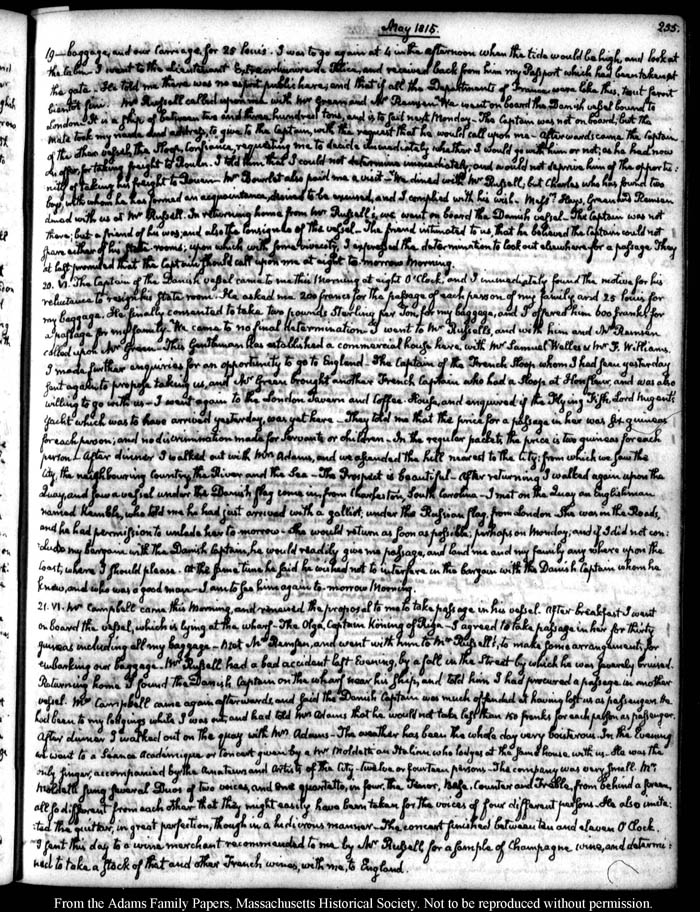 May 1815.
255.
19— baggage, and our Carriage, for 25 Louis. I was to go again at 4 in the afternoon when the tide would be high, and look at
the cabin. I went to the Lieutenant Extraordinaire de Police, and received back from him my Passport which had been taken at
the gate. He told me there was no esprit public here, and that if all the Departments of France were like this, tout seroit
bientôt fini. Mr Russell called upon me with Mr Green and Mr Ramsen. We went on board the Danish vessel bound to
London. It is a ship of between two and three hundred tons, and is to sail next Monday. The Captain was not on board, but the
Mate took my name and address, to give to the Captain, with the request that he would call upon me. Afterwards came the Captain
of the other vessel, the Sloop, Confiance, requesting me to decide immediately whether I would go with him or not; as he had now
an offer, for taking freight to Rouen. I told him that I could not determine immediately; and would not deprive him of the opportu:
nity of taking his freight to Rouen. Mr Bourlet also paid me a visit. We dined with Mr Russell, but Charles who has found two
boys, with whom he has formed an acquaintance, desired to be excused, and I complied with his wish. Messrs Hays, Green and Ramsen
dined with us at Mr Russell. In returning home from Mr Russell's, we went on board the Danish vessel. The Captain was not
there; but a friend of his was; and also the consignee of the vessel. The friend intimated to us, that he believed the Captain could not
spare either of his state rooms; upon which with some vivacity, I expressed the determination to look out elsewhere for a passage. They
at last promised that the Captain should call upon me at eight to-morrow Morning.
20. VI. The Captain of the Danish vessel came to me this Morning at eight O'Clock, and I immediately found the motive for his
reluctance to resign his State room. He asked me 200 francs for the passage of each person of my family and 25 Louis for
my baggage. He finally consented to take two pounds Sterling per Ton, for my baggage, and I offered him 600 franks for
a passage for my family. We came to no final determination. I went to Mr Russell's, and with him and Mr Ramsen
called upon Mr Green. This Gentleman has established a commercial house here, with Mr Samuel Welles & Mr F. Williams.
I made further enquiries for an opportunity to go to England. The Captain of the French Sloop whom I had seen yesterday
sent again to propose taking us, and Mr Green brought another French Captain who had a Sloop at Honfleur, and was also
willing to go with us. I went again to the London Tavern and Coffee-House, and enquired if the Flying Fish, Lord Nugent's
yacht which was to have arrived yesterday, was yet here. They told me that the price for a passage in her was six guineas
for each person; and no discrimination made for servants or children. In the regular packets, the price is two guineas for each
person. After dinner I walked out with Mrs Adams, and we ascended the hill nearest to the City; from which we saw the
City, the neighbouring Country, the River and the Sea. The Prospect is beautiful. After returning I walked again upon the
Quay, and saw a vessel under the Danish flag come in, from Charleston, South Carolina. I met on the Quay an Englishman
named Kemble, who told me he had just arrived with a galliot, under the Russian flag, from London. She was in the Roads,
and he had permission to unlade her to-morrow. She would return as soon as possible; perhaps on Monday; and if I did not con:
clude my bargain with the Danish Captain, he would readily give me passage, and land me and my family any where upon the
Coast, where I should please. At the same time he said he wished not to interfere in the bargain with the Danish Captain whom he
knew, and who was a good man. I am to see him again to-morrow Morning.
21. VI. Mr Campbell came this Morning, and renewed the proposal to me to take passage in his vessel. After breakfast I went
on board the vessel, which is lying at the wharf. The Olga, Captain Koning of Riga. I agreed to take passage in her for thirty
guineas including all my baggage. Met Mr Ramsen, and went with him to Mr Russell's, to make some arrangements for
embarking our baggage. Mr Russell had a bad accident last Evening, by a fall in the Street by which he was severely bruised.
Returning home I found the Danish Captain on the wharf near his ship, and told him I had procured a passage in another
vessel. Mr Campbell came again afterwards, and said the Danish Captain was much offended at having lost us as passengers. He
had been to my lodgings while I was out, and had told Mrs Adams that he would not take less than 150 franks for each person as passenger.
After dinner I walked out on the quay with Mrs Adams. The weather has been the whole day very boisterous. In the Evening
we went to a Seance Academique or Concert given by a Mr Moldetti an Italian who lodges at the same house with us. He was the
only singer, accompanied by the Amateurs and Artists of the City. Twelve or fourteen persons. The company was very small. Mr
Moldetti sung several Duos of two voices, and one quartetto, in four, the Tenor, Base, Counter and Treble, from behind a screen,
all so different from each other that they might easily have been taken for the voices of four different persons. He also imita:
ted the guitar, in great perfection, though in a ludicrous manner. The concert finished between ten and eleven O'Clock.
I sent this day to a wine merchant recommended to me by Mr Russell for a sample of Champagne wine, and determi:
ned to take a stock of that and other French wines, with me, to England.
From the Adams Family Papers, Massachusetts Historical Society. Not to be reproduced without permission.